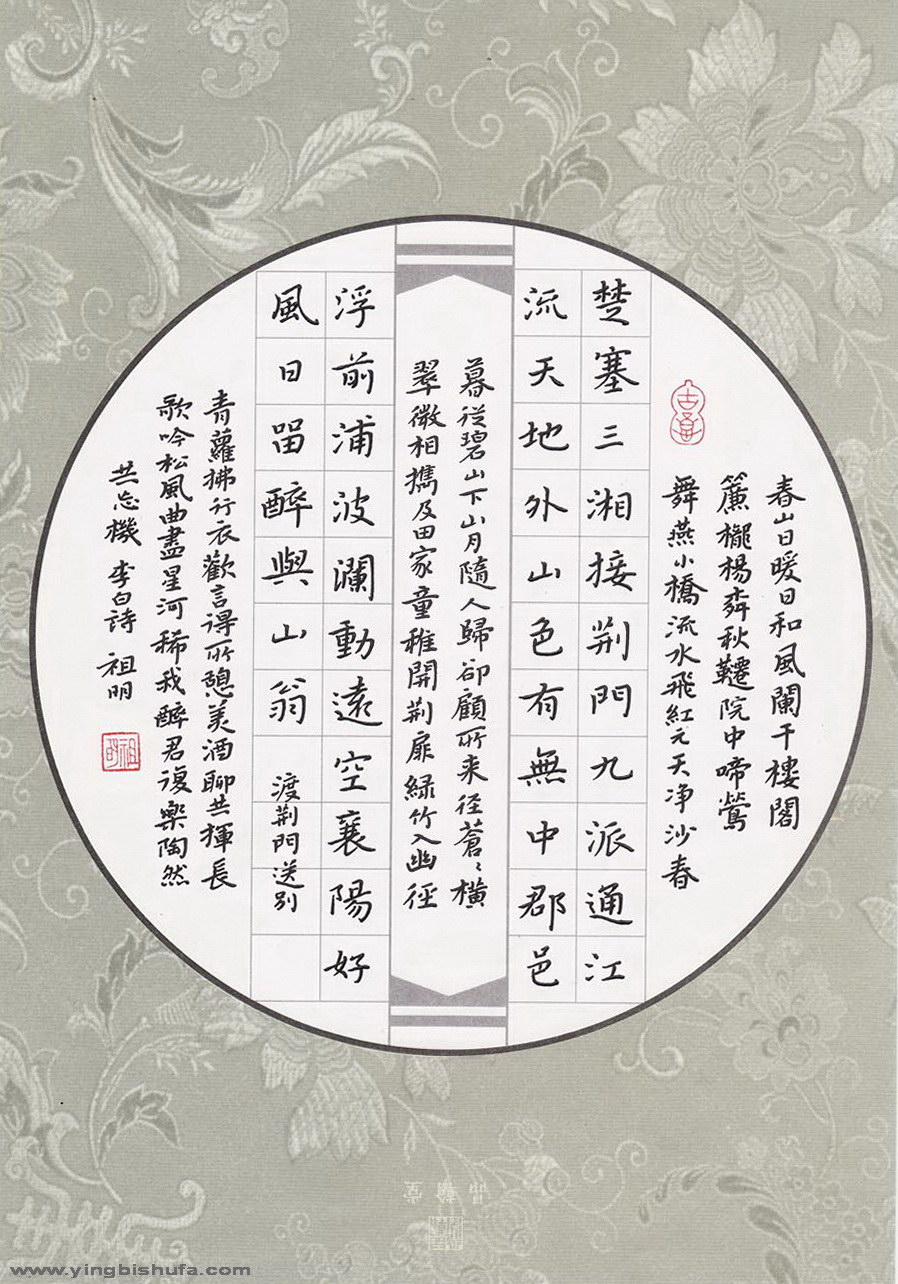 春山日暖日和風闌干樓閣
簾櫳楊柳秋韆院中啼鶯
舞燕小橋流水飛紅元天净沙春
楚塞三湘接荆門九派通江
流天地外山色有無中郡邑
暮從碧山下山月隨人歸卻顧所来径蒼〻橫
翠微相攜及田家童稚開荆扉緑竹入幽徑
浮前浦波瀾動遠空襄陽好
風日留醉與山翁
渡荆門送别
青蘿拂行衣歡言得所憩美酒聊共揮長
歌吟松風曲盡星河稀我醉君復樂陶然
共忘機 李白詩 祖明
祖明
www.yingbishufa.com